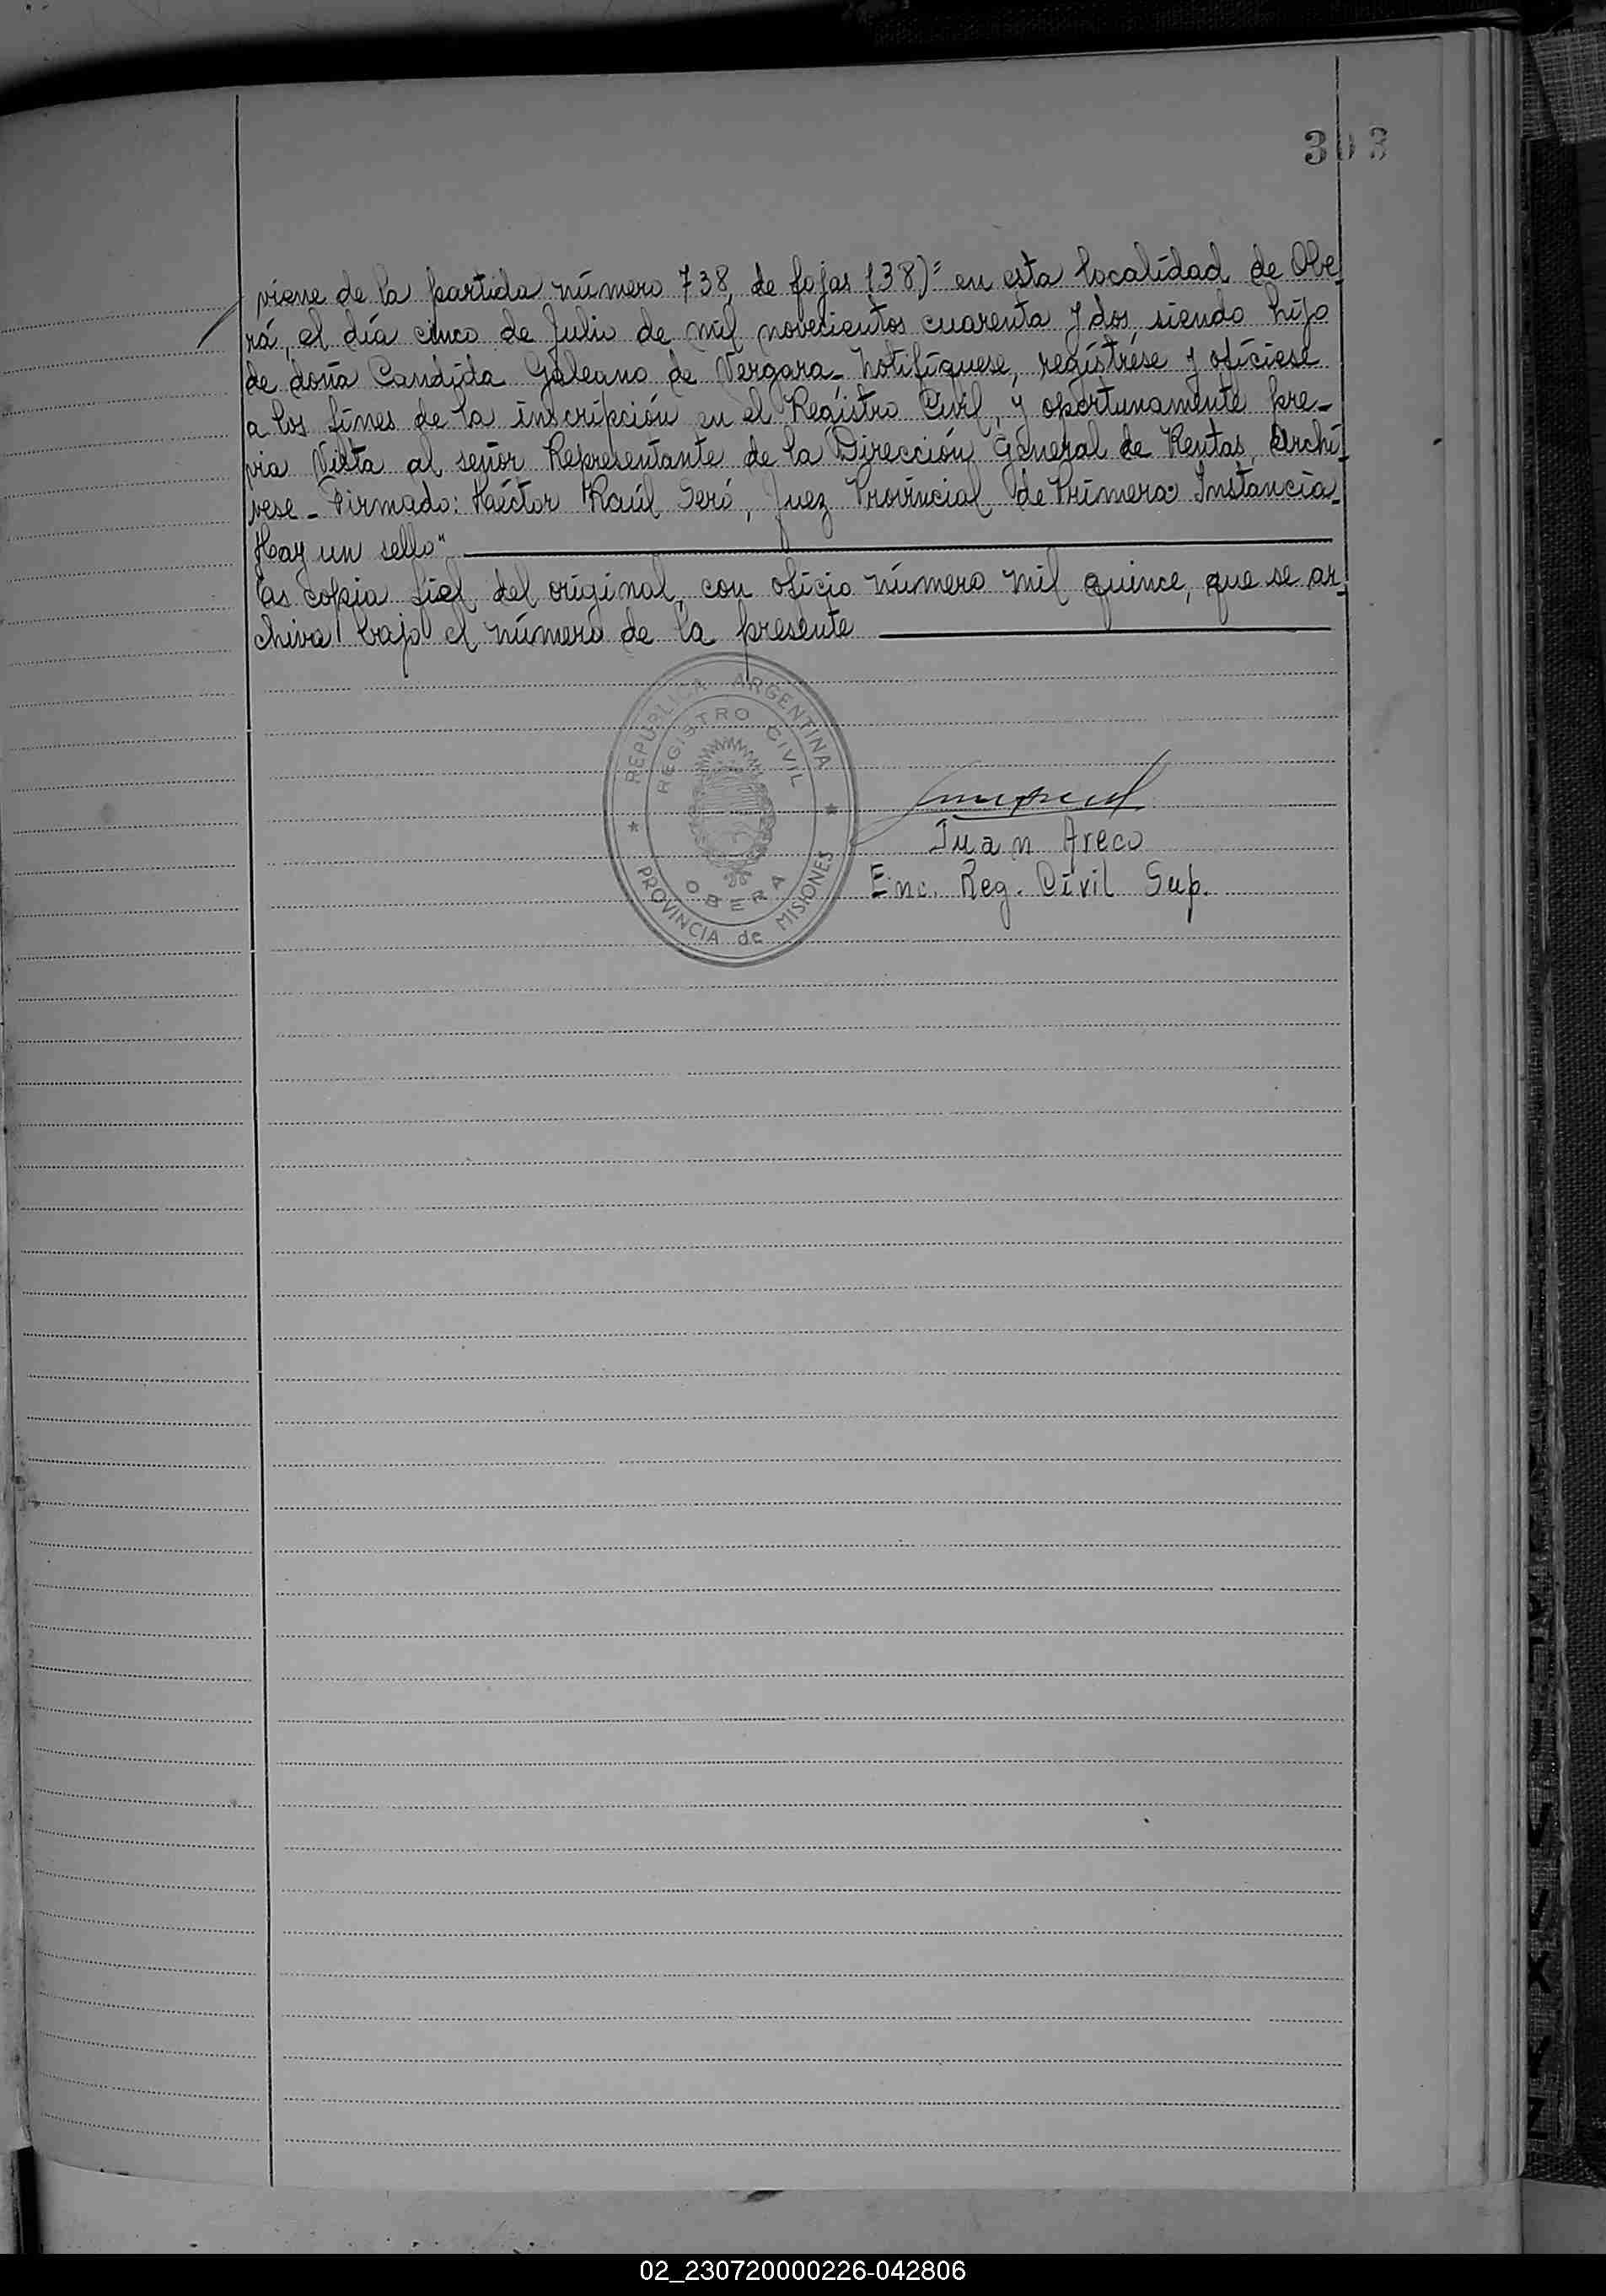 303
viene de la partida número 738, de fojas 138)= en esta localidad de Obe-
rá, el día cinco de Julio de mil novecientos cuarenta y dos siendo hijo
de doña Candida Galeano de Vergara_ Notifíquese, regístrese y ofíciese
a los fines de la inscripción en el Registro Civil, y oportunamente pre-
via Vista al señor Representante de la Dirección General de Rentas, Archí-
vese_ Firmado: Héctor Raúl Seró, Juez Provincial de Primera Instancia_
Hay un sello"
Es copia fiel del original, con oficio número mil quince, que se ar-
chiva bajo el número de la presente
REPUBLICA ARGENTINA
REGISTRO CIVIL
OBERA
PROVINCIA de MISIONES
Juan Areco
Enc. Reg. Civil Sup.
V
X
Y
Z
02_230720000226-042806